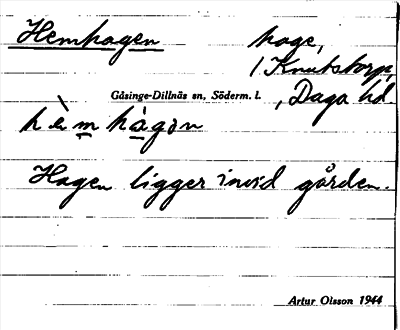 Hemhagen hage,
/ Knutstorp,
Gåsinge-Dillnäs sn, Söderm. l. , Daga hd.
hèm hàgȯn
Hagen ligger invid gården.
Artur Olsson 1944